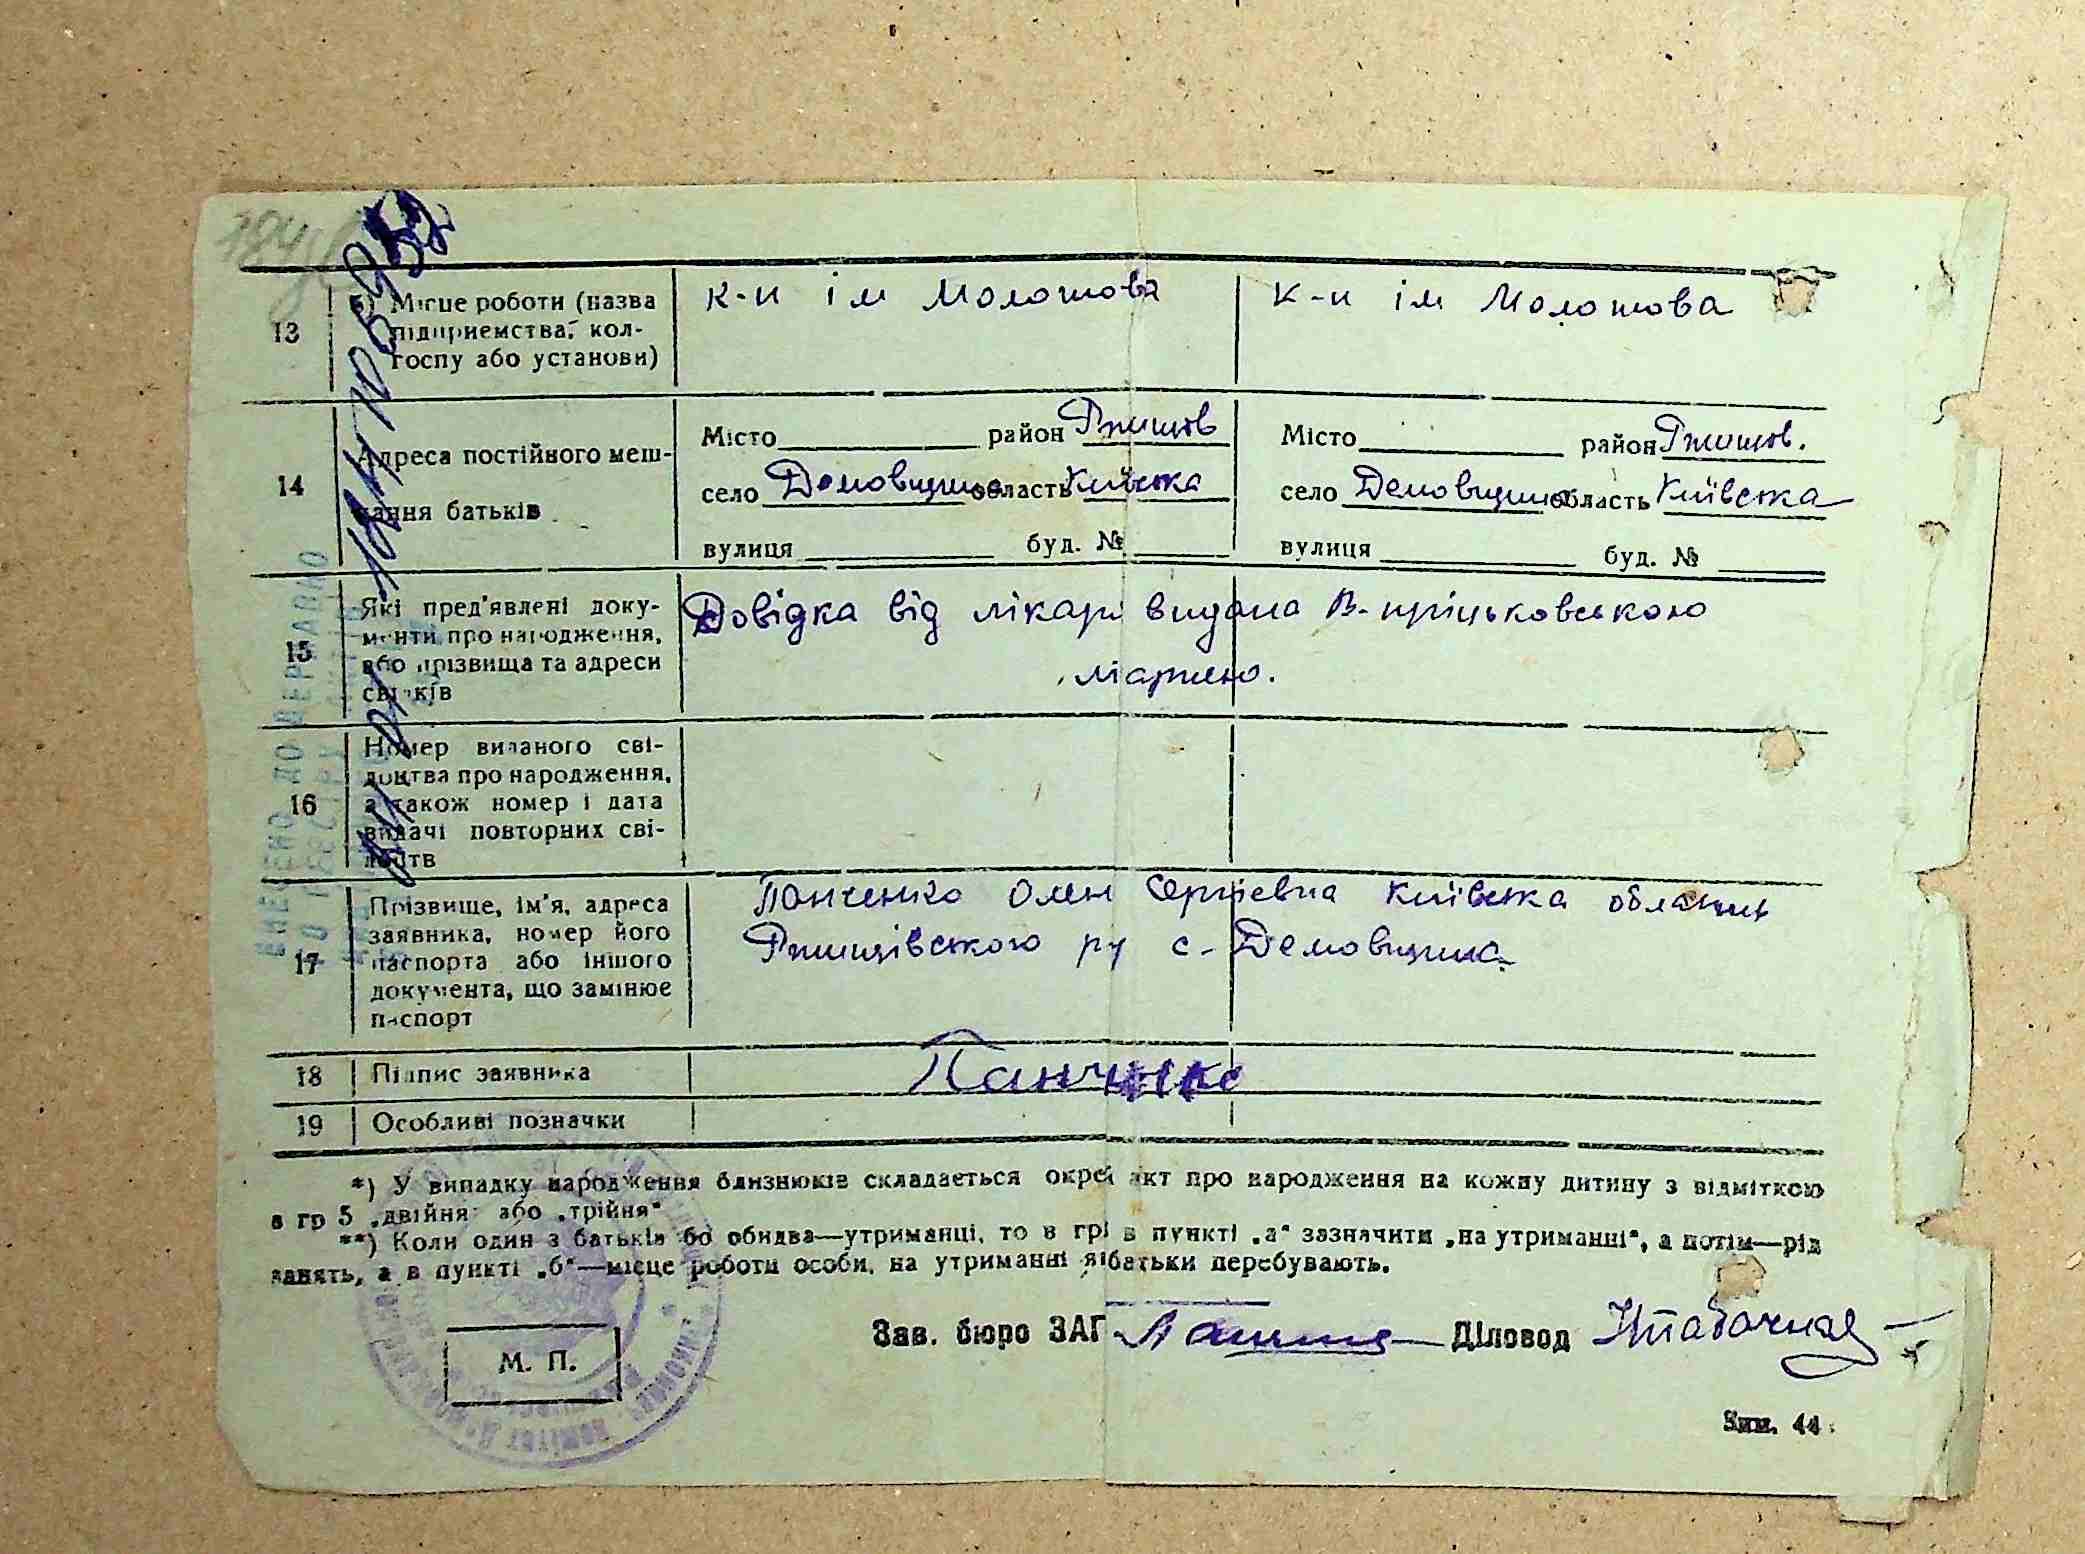 184
13
б) Місце роботи (назва
підприємства, кол-
госпу або установи)
к-п ім Молотова
к-п ім Молотова
14
Адреса постійного меш-
кання батьків
Місто район Ржищів
село Демовщина область Київська
вулиця буд. №
Місто район Ржищів.
село Демовщина область Київська
вулиця буд. №
15
Які пред'явлені доку-
менти про народження,
або прізвища та адреси
свідків
Довідка від лікарі видана В-пріцьковською
лікарнею.
16
Номер виданого сві-
доцтва про народження,
а також номер і дата
видачі повторних сві-
доцтв
17
Прізвище, ім'я, адреса
заявника, номер його
паспорта або іншого
документа, що замінює
паспорт
Панченко Олен Сергіевна Київська область
Ржищівського р-у с-Демовщина
18
Підпис заявника
Панченко
19
Особливі позначки
*) У випадку народження близнюків складається окрей акт про народження на кожну дитину з відміткою
в гр 5 „двійня" або „трійня"
**) Коли один з батьків бо обидва—утриманці, то в грі в пункті „а" зазначити „на утриманні", а потім—рід
занять, а в пункті „б"—місце роботи особи, на утриманні я батьки перебувають.
М. П.
Зав. бюро ЗАГ
Діловод
Зим. 44
ВНЕСЕНО ДО ДЕРЖАВНО